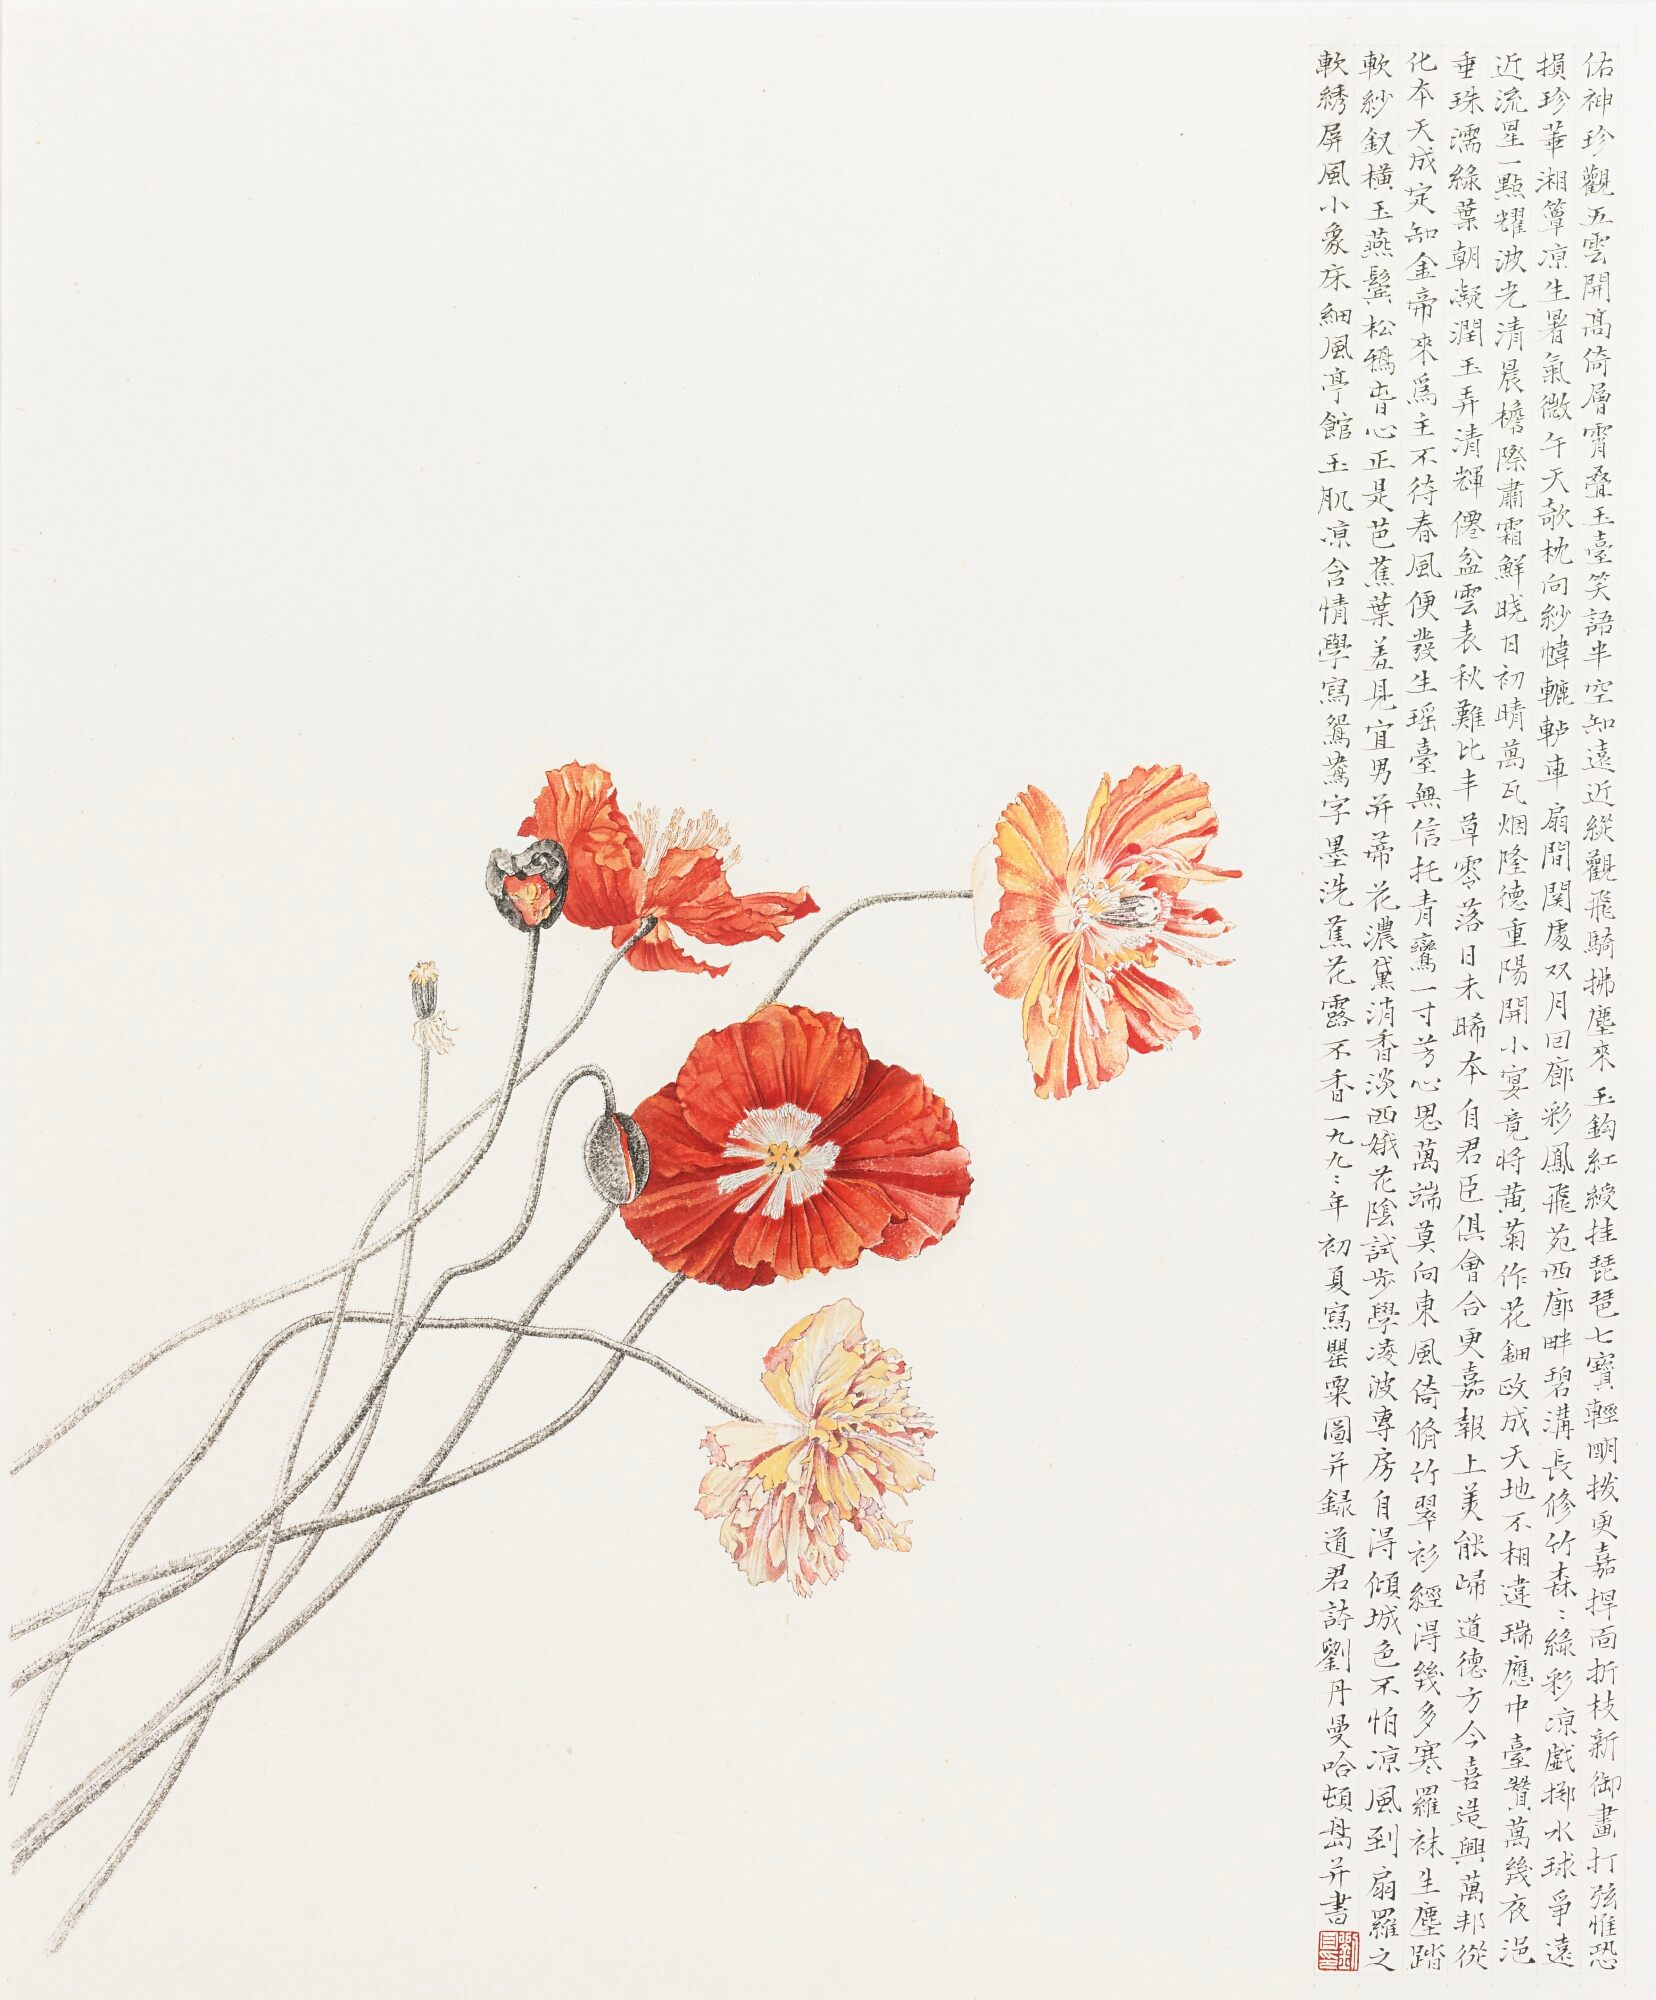 佑神珍觀五雲開高倚層霄叠玉臺笑語半空知遠近縱觀飛騎拂塵來玉鈎紅綬挂琵琶七寶輕明撥更嘉捍面折枝新御畫打弦惟恐
損珍華湘簟凉生暑氣微午天欹枕向紗幃轆轤車扇間関處双月回廊彩鳳飛苑西廊畔碧溝長修竹森〻綠彩凉戲擲水球爭遠
近流星一點耀波光清晨檐際肅霜鮮曉日初晴萬瓦烟隆德重陽開小宴竟將黃菊作花鈿政成天地不相違瑞應中臺贊萬幾夜浥
垂珠濡綠葉朝凝潤玉弄清輝僊盆雲表秋難比丰草零落日未晞本自君臣俱會合更嘉報上美能歸道德方今喜造興萬邦從
化本天成定知金帝來爲主不待春風便發生瑶臺無信托青鸞一寸芳心思萬端莫向東風倚脩竹翠衫經得幾多寒羅袜生塵踏
軟紗釵橫玉燕鬓松鴉
心正是芭蕉葉羞見宜男并蒂花濃黛消香淡两娥花陰試步學凌波專房自得傾城色不怕凉風到扇羅之
軟綉屏風小象床細風亭館玉肌凉含情學寫鴛鴦字墨洗蕉花露不香一九九〻年初夏寫罌粟圖并録道君詩劉丹曼哈頓島并書